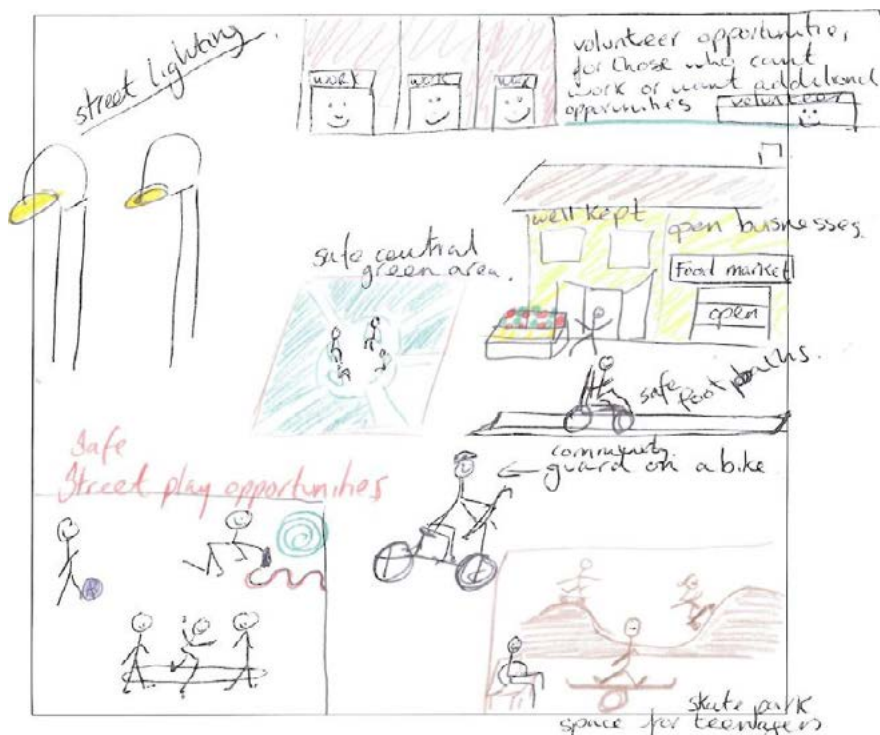 street lighting.
work
work
work
volunteer opportunities,
for those who cant
work or want additional
opportunities
volunteer
well kept
open businesses.
Food market
open
safe central
green area.
safe
foot paths.
community
guard on a bike
Safe
Street play opportunities
skate park
space for teenagers